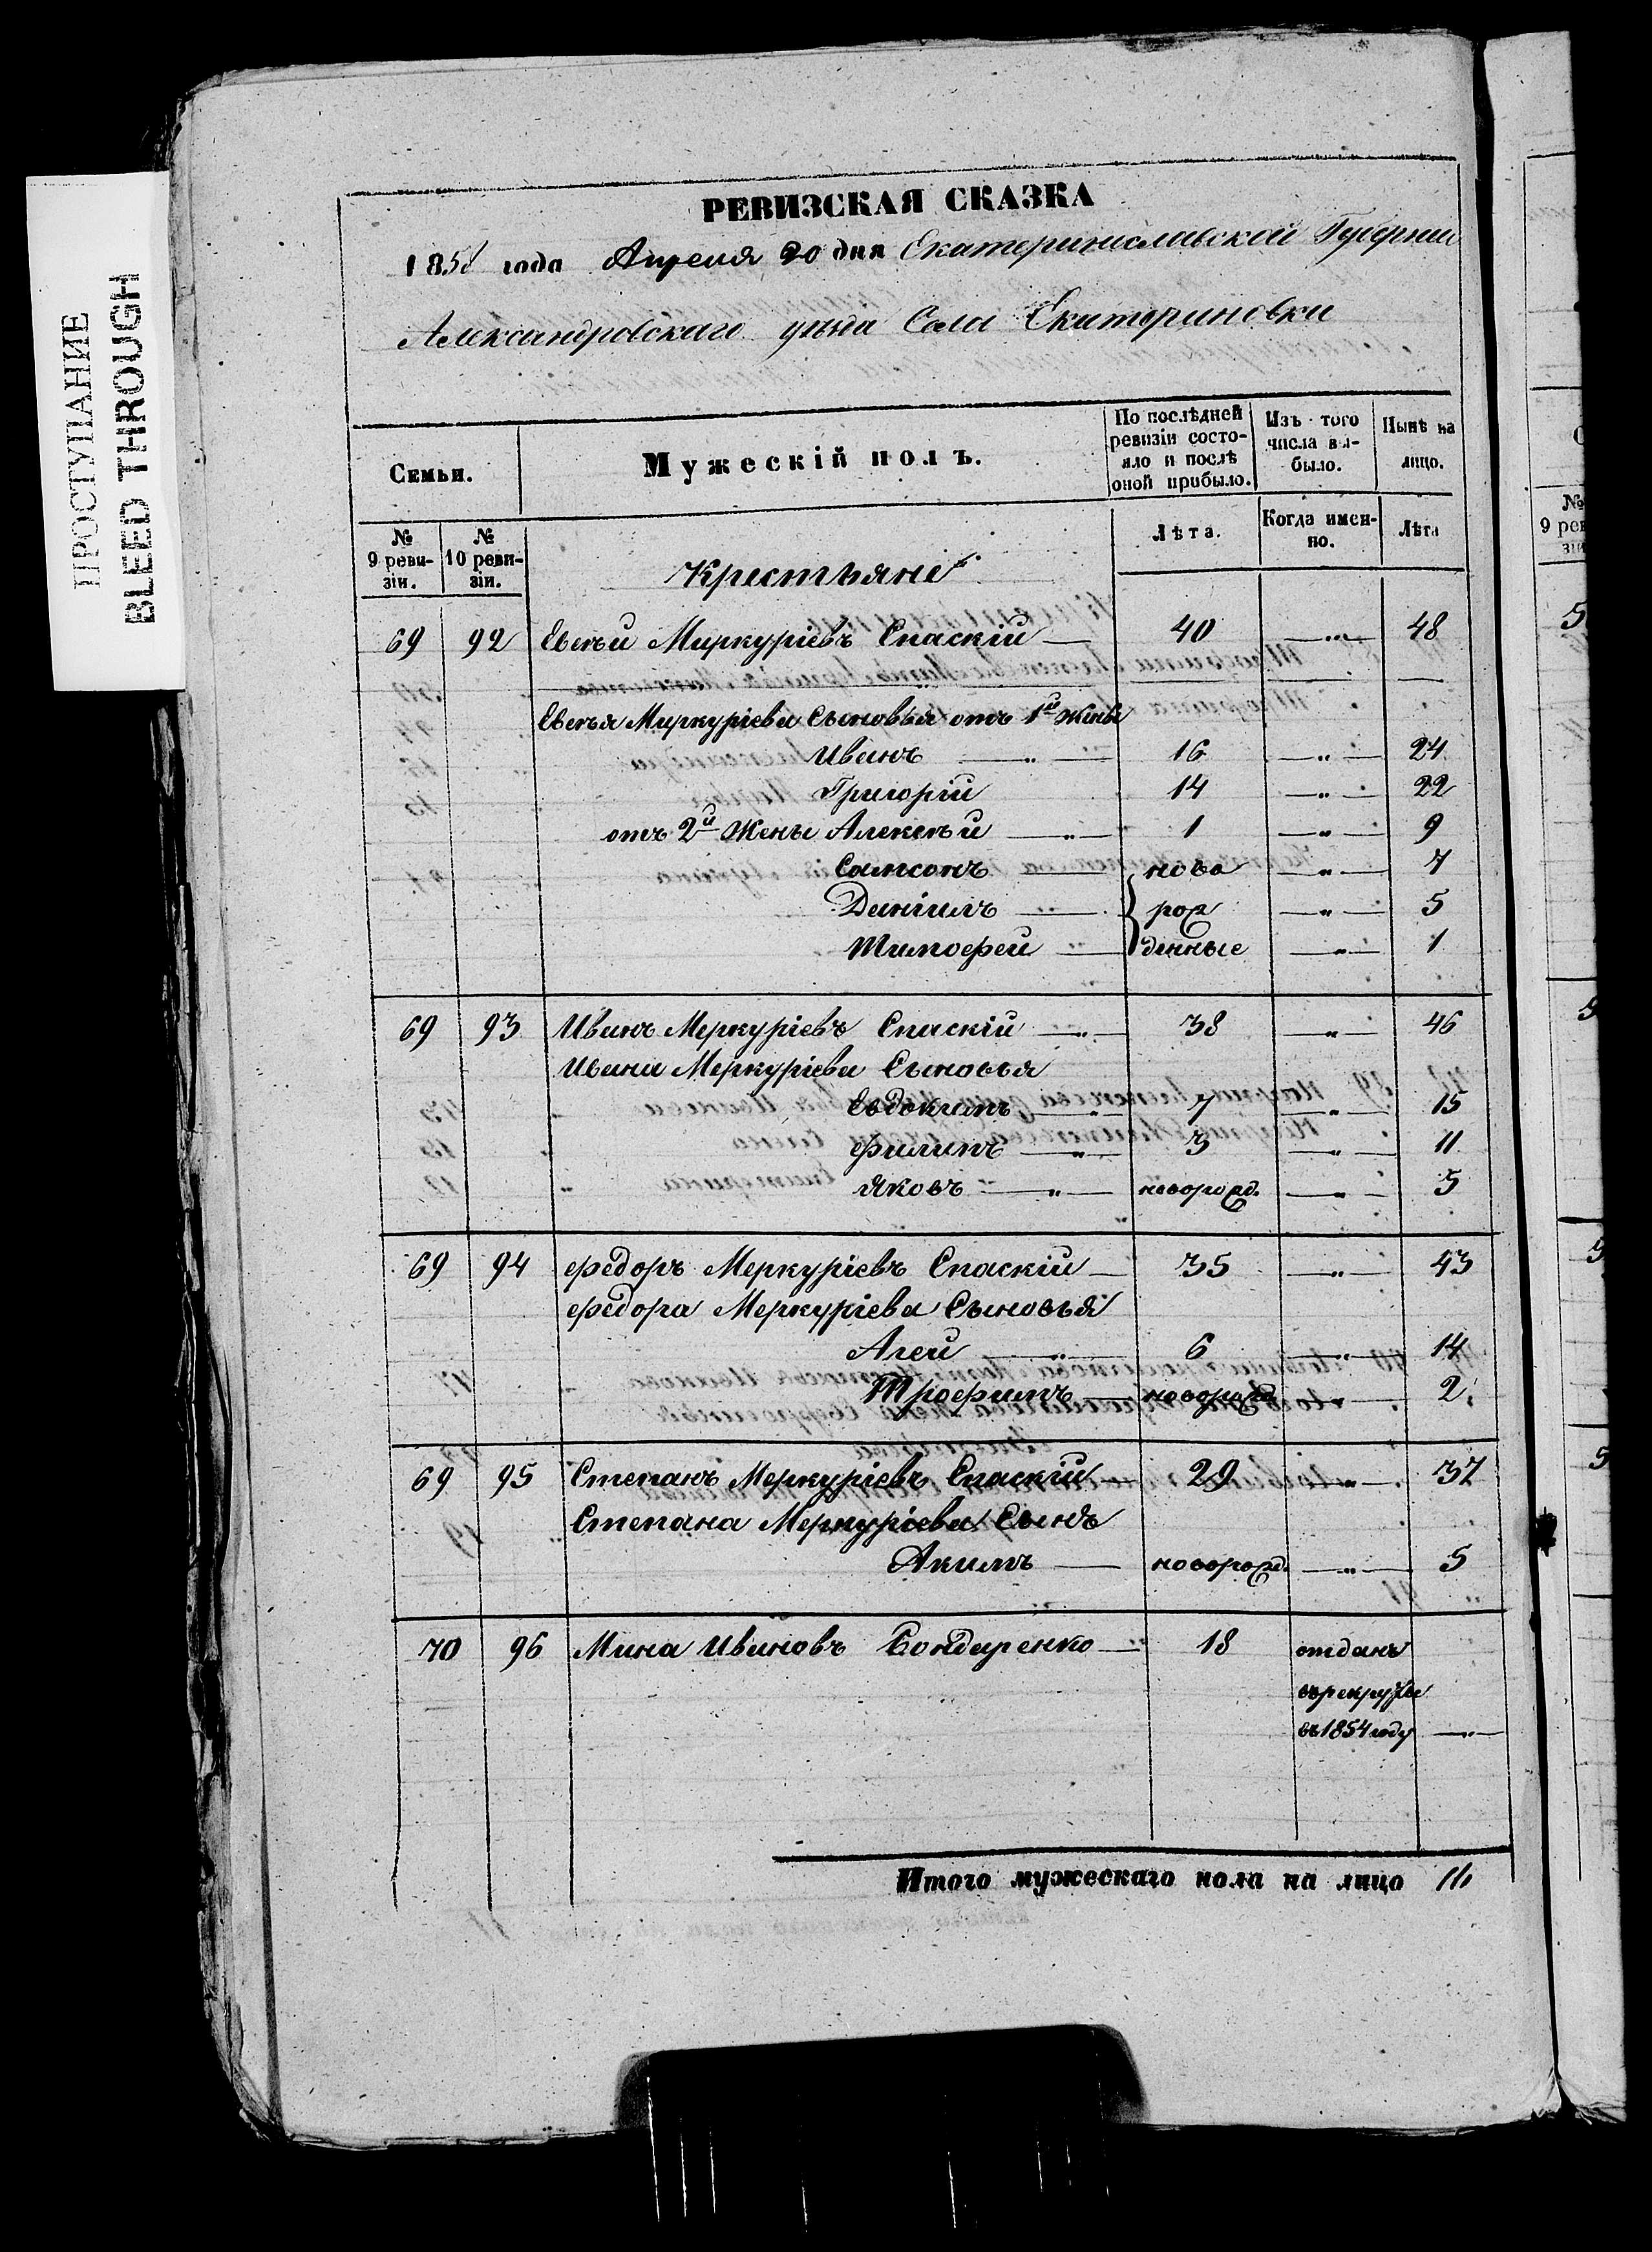 ПРОСТУПАНИЕ
BLEED THROUGH
РЕВИЗСКАЯ СКАЗКА
1858 года Апреля 20 дня Екатеринославской Губернии
Александровскаго уѣзда Села Екатериновки
Семьи.
Мужескій полъ.
По послѣдней ревизіи состояло и послѣ оной прибыло.
Изъ того числа выбыло.
Нынѣ на лицо.
№ 9 ревизіи.
№ 10 ревизіи.
Крестьяне
Лѣта.
Когда именно.
Лѣта
69 92 Евсѣй Меркуріевъ Спаскій 40 — „ — 48
Евсѣя Меркуріева Сыновья отъ 1й жены
Иванъ — „ — 16 — „ — 24
Григорій 14 — „ — 22
отъ 2й жены Алексѣй — „ — 1 — „ — 9
Самсонъ — ново — „ — 7
Даніилъ — рож — „ — 5
Тимофей — денные — „ — 1
69 93 Иванъ Меркуріевъ Спаскій — „ — 38 — „ — 46
Ивана Меркуріева Сыновья
Евдокимъ — „ — 7 — „ — 15
Филипъ — „ — 3 — „ — 11
Яковъ — „ — новорожд. — „ — 5
69 94 Федоръ Меркуріевъ Спаскій — 35 — „ — 43
Федора Меркуріева Сыновья
Агей — „ — 6 — „ — 14
Трофимъ — новорожд. — „ — 2
69 95 Степанъ Меркуріевъ Спаскій — 29 — „ — 37
Степана Меркуріева Сынъ
Акимъ — новорожд. — „ — 5
70 96 Мина Ивановъ Бондаренко — 18 отданъ
въ рекруты
въ 1854 году — „ —
Итого мужескаго пола на лицо 16